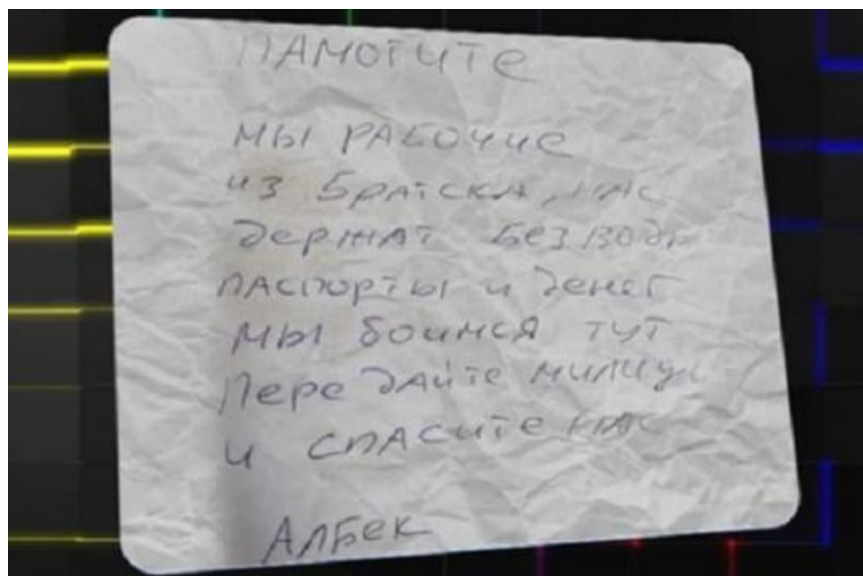 ПАМОГИТЕ
МЫ РАБОЧИЕ
ИЗ БРАТСКА, НАС
ДЕРЖАТ БЕЗ ВОДЫ
ПАСПОРТЫ И ДЕНЕГ
МЫ БОИМСЯ ТУТ
ПЕРЕДАЙТЕ МИЛИЦИ
И СПАСИТЕ НАС
АЛБЕК